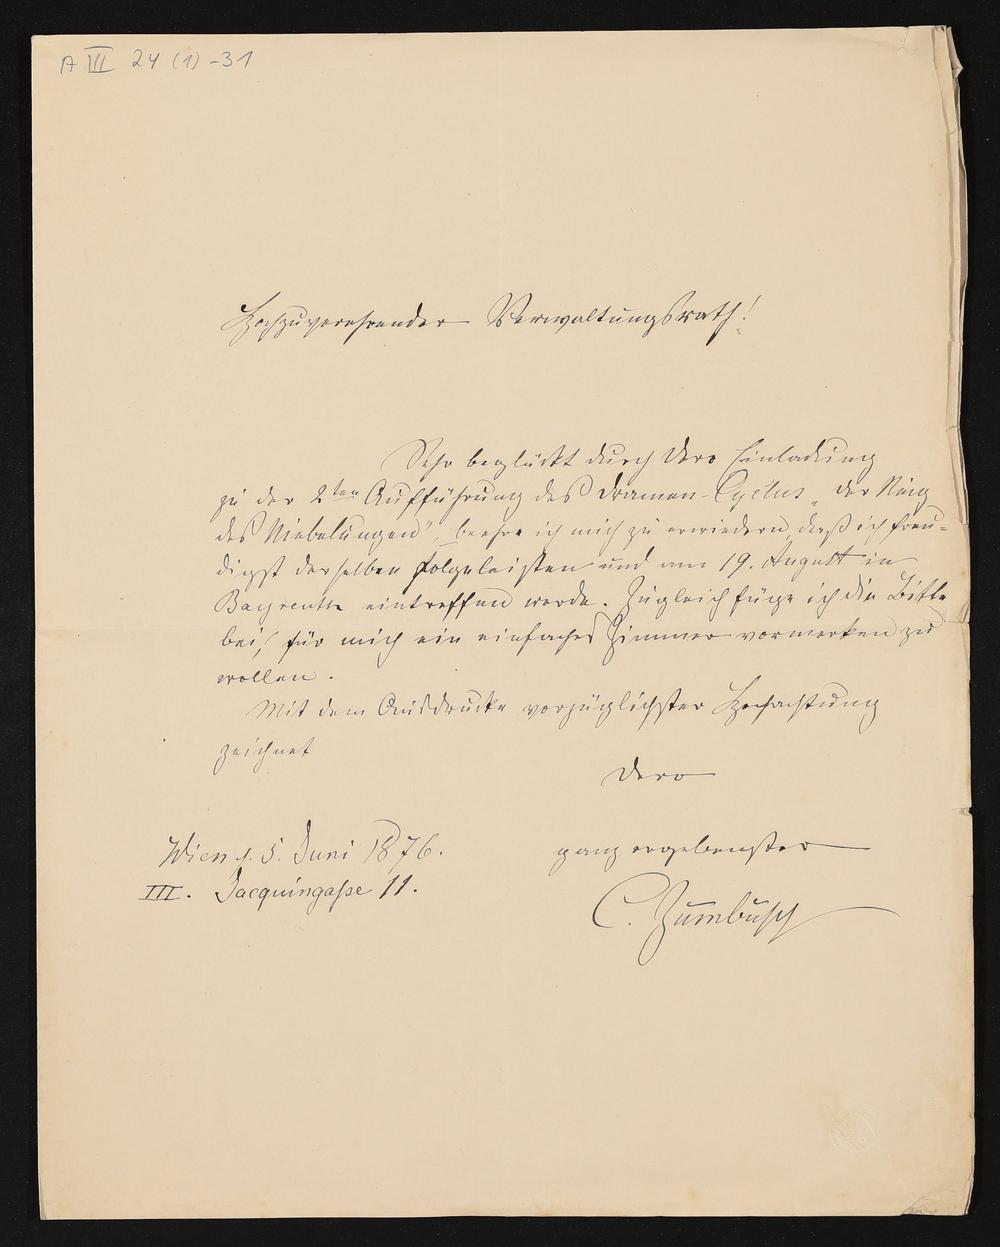 A III 24 (1) -31
Hochzuverehrender Verwaltungsrath!
Sehr beglückt durch Dero Einladung
zu der 2ten Aufführung des Dramen-Cyclus „der Ring
des Niebelungen", beehre ich mich zu erwiedern, daß ich freu-
digst derselben Folge leisten und am 19. August in
Bayreuth eintreffen werde. Zugleich füge ich die Bitte
bei, für mich ein einfaches Zimmer vormerken zu
wollen.
Mit dem Ausdrucke vorzüglichster Hochachtung
zeichnet
Dero
ganz ergebenster
Wien d. 5. Juni 1876.
III. Jacquingasse 11.
C. Zumbusch